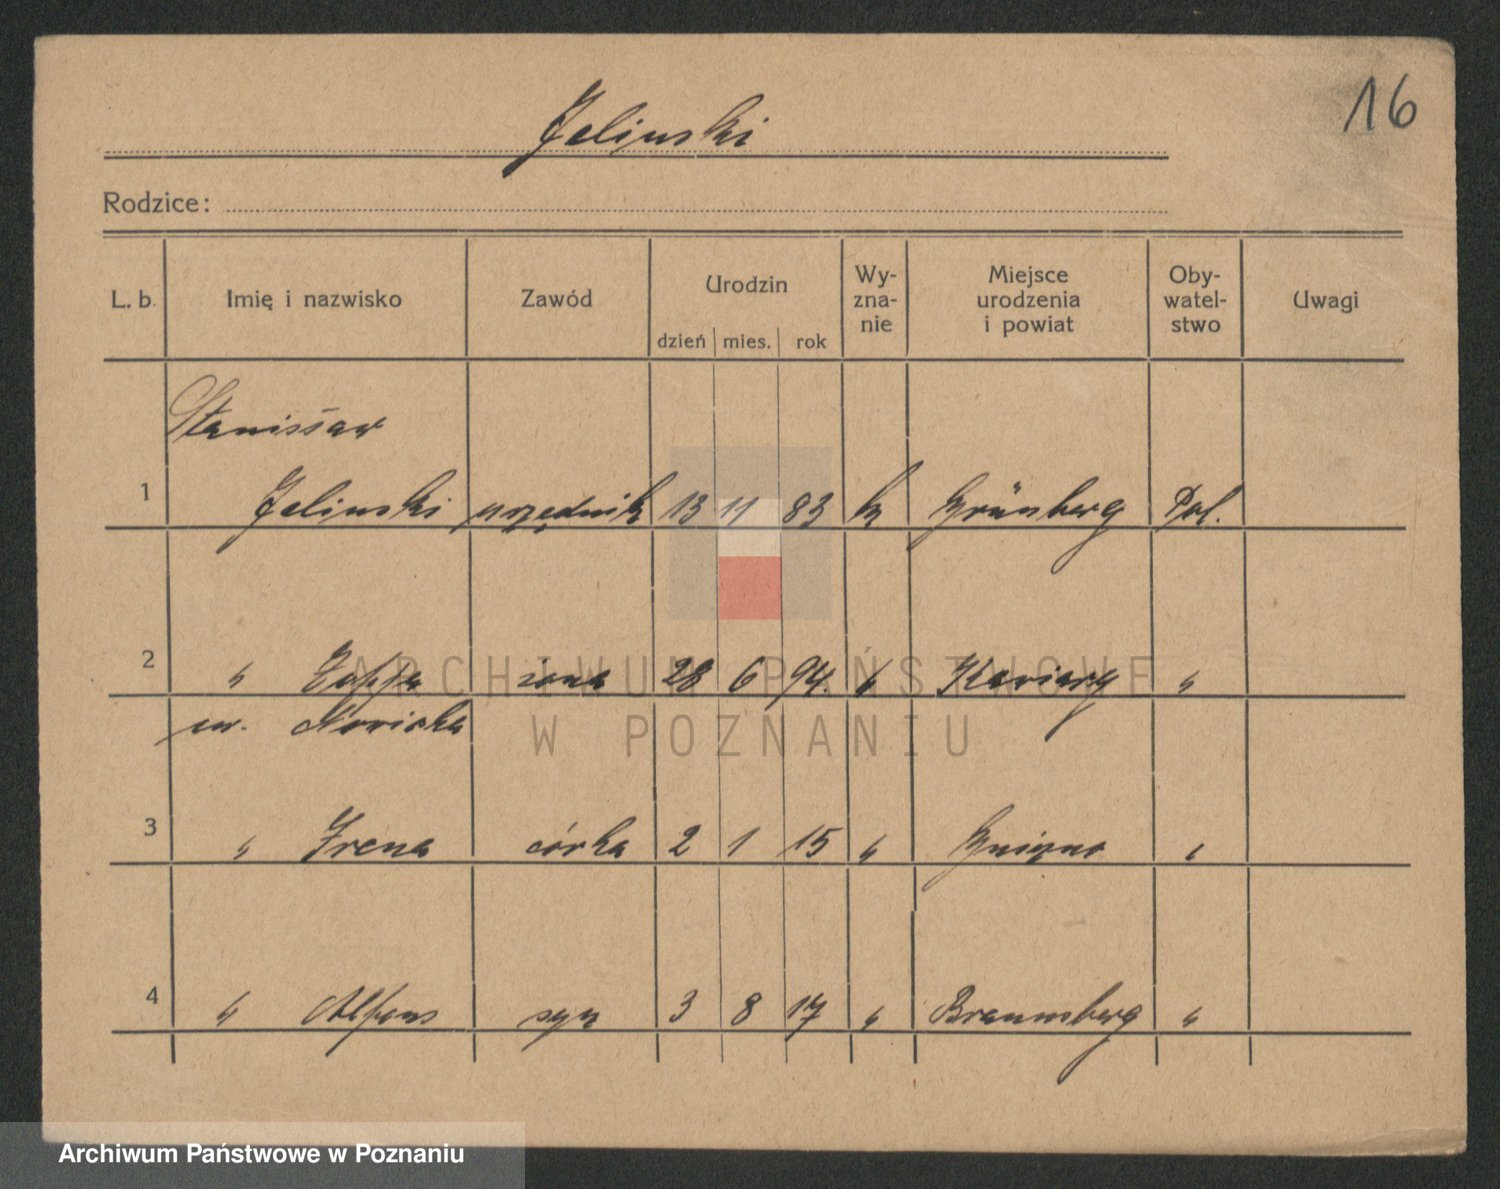 16
Jelinski
Rodzice:
L. b. Imię i nazwisko Zawód Urodzin Wy- Miejsce Oby- Uwagi
zna- urodzenia watel-
nie i powiat stwo
dzień mies. rok
Stanisław
1 Jelinski urzędnik 13 11 83 k Grünberg Pol.
2 " Zofja żona 28 6 94. "  "
ur.
3 " Irena córka 2 1 15 " Gniezno "
4 " Alfons syn 3 8 17 " Braunsberg "
ARCHIWUM PAŃSTWOWE
W POZNANIU
Archiwum Państwowe w Poznaniu